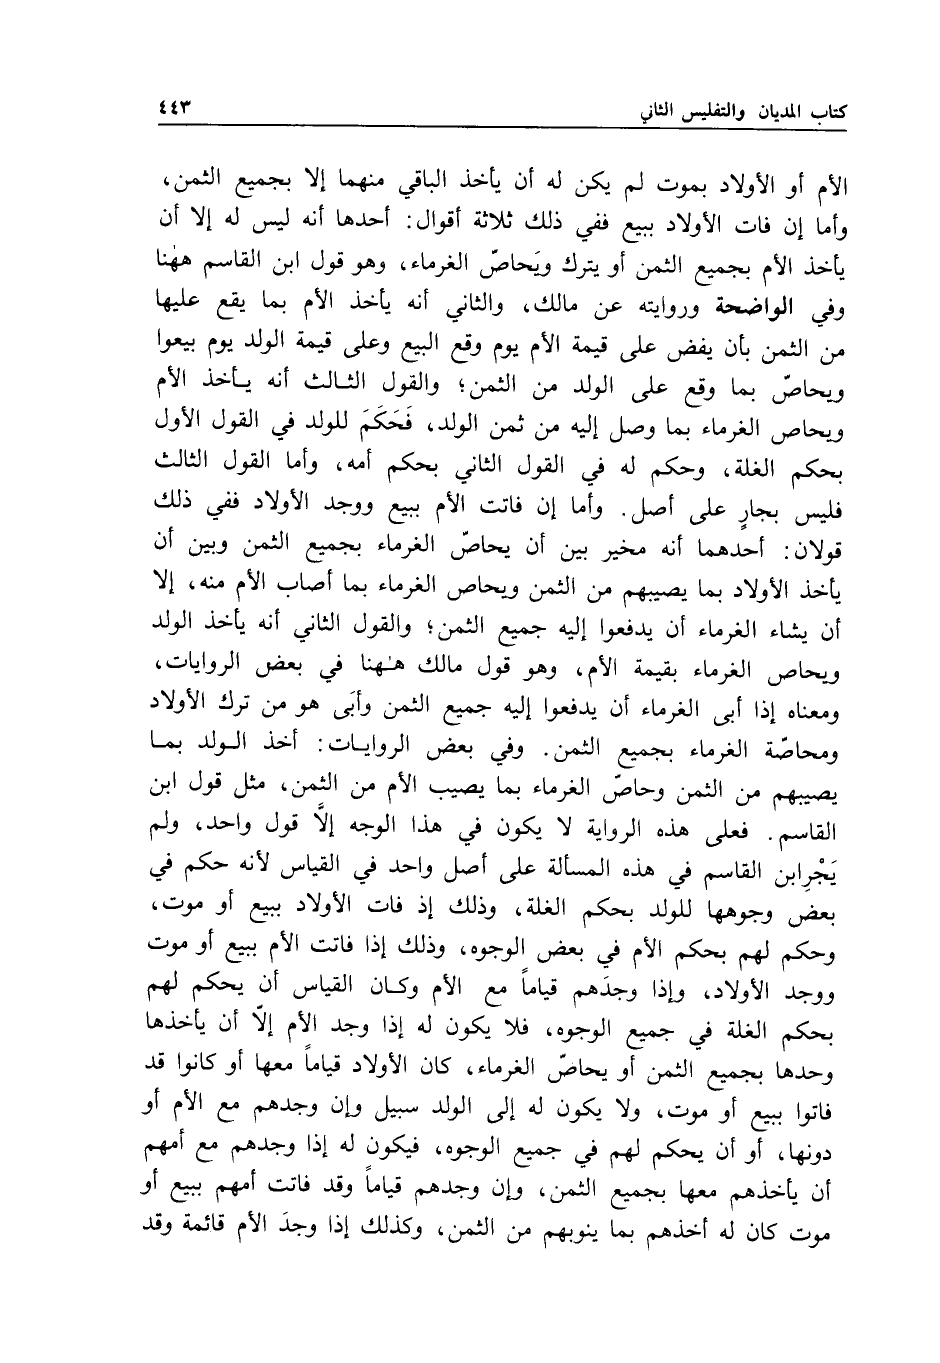 كتاب المديان والتفليس الثاني ٤٤٣
الأم أو الأولاد بموت لم يكن له أن يأخذ الباقي منهما إلا بجميع الثمن،
وأما إن فات الأولاد ببيع ففي ذلك ثلاثة أقوال: أحدها أنه ليس له إلا أن
يأخذ الأم بجميع الثمن أو يترك ويَحاصّ الغرماء، وهو قول ابن القاسم ههُنا
وفي الواضحة وروايته عن مالك، والثاني أنه يأخذ الأم بما يقع عليها
من الثمن بأن يفض على قيمة الأم يوم وقع البيع وعلى قيمة الولد يوم بيعوا
ويحاصّ بما وقع على الولد من الثمن؛ والقول الثالث أنه يأخذ الأم
ويحاص الغرماء بما وصل إليه من ثمن الولد، فَحَكَمَ للولد في القول الأول
بحكم الغلة، وحكم له في القول الثاني بحكم أمه، وأما القول الثالث
فليس بجارٍ على أصل. وأما إن فاتت الأم ببيع ووجد الأولاد ففي ذلك
قولان: أحدهما أنه مخير بين أن يحاصّ الغرماء بجميع الثمن وبين أن
يأخذ الأولاد بما يصيبهم من الثمن ويحاص الغرماء بما أصاب الأم منه، إلا
أن يشاء الغرماء أن يدفعوا إليه جميع الثمن؛ والقول الثاني أنه يأخذ الولد
ويحاص الغرماء بقيمة الأم، وهو قول مالك هـٰهنا في بعض الروايات،
ومعناه إذا أبى الغرماء أن يدفعوا إليه جميع الثمن وأبَى هو من ترك الأولاد
ومحاصّة الغرماء بجميع الثمن. وفي بعض الروايات: أخذ الولد بما
يصيبهم من الثمن وحاصّ الغرماء بما يصيب الأم من الثمن، مثل قول ابن
القاسم. فعلى هذه الرواية لا يكون في هذا الوجه إلاَّ قول واحد، ولم
يَجْرِابن القاسم في هذه المسألة على أصل واحد في القياس لأنه حكم في
بعض وجوهها للولد بحكم الغلة، وذلك إذ فات الأولاد ببيع أو موت،
وحكم لهم بحكم الأم في بعض الوجوه، وذلك إذا فاتت الأم ببيع أو موت
ووجد الأولاد، وإذا وجدَهم قياماً مع الأم وكان القياس أن يحكم لهم
بحكم الغلة في جميع الوجوه، فلا يكون له إذا وجد الأم إلاّ أن يأخذها
وحدها بجميع الثمن أو يحاصّ الغرماء، كان الأولاد قياماً معها أو كانوا قد
فاتوا ببيع أو موت، ولا يكون له إلى الولد سبيل وإن وجدهم مع الأم أو
دونها، أو أن يحكم لهم في جميع الوجوه، فيكون له إذا وجدهم مع أمهم
أن يأخذهم معها بجميع الثمن، وإن وجدهم قياماً وقد فاتت أمهم ببيع أو
موت كان له أخذهم بما ينوبهم من الثمن، وكذلك إذا وجدَ الأم قائمة وقد